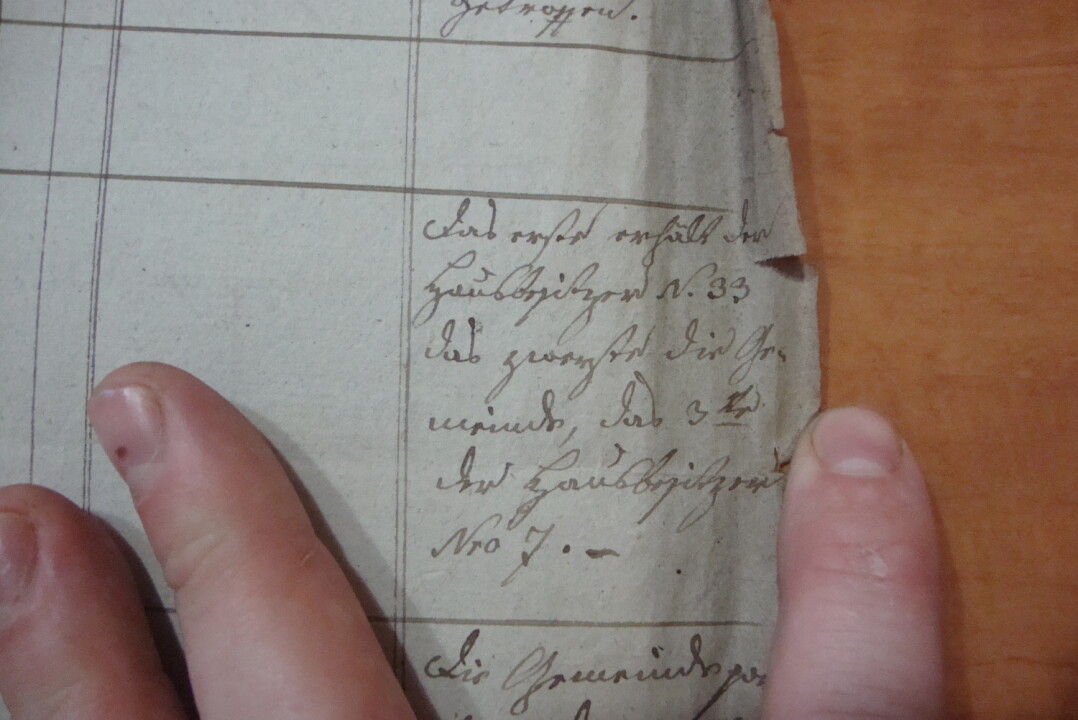 getroffen.
Das erste erhält der
Hausbesitzer N. 33
das zweyte die Ge-
meinde, das 3te
der Hausbesitzer
Nro 7. —
Die Gemeinde